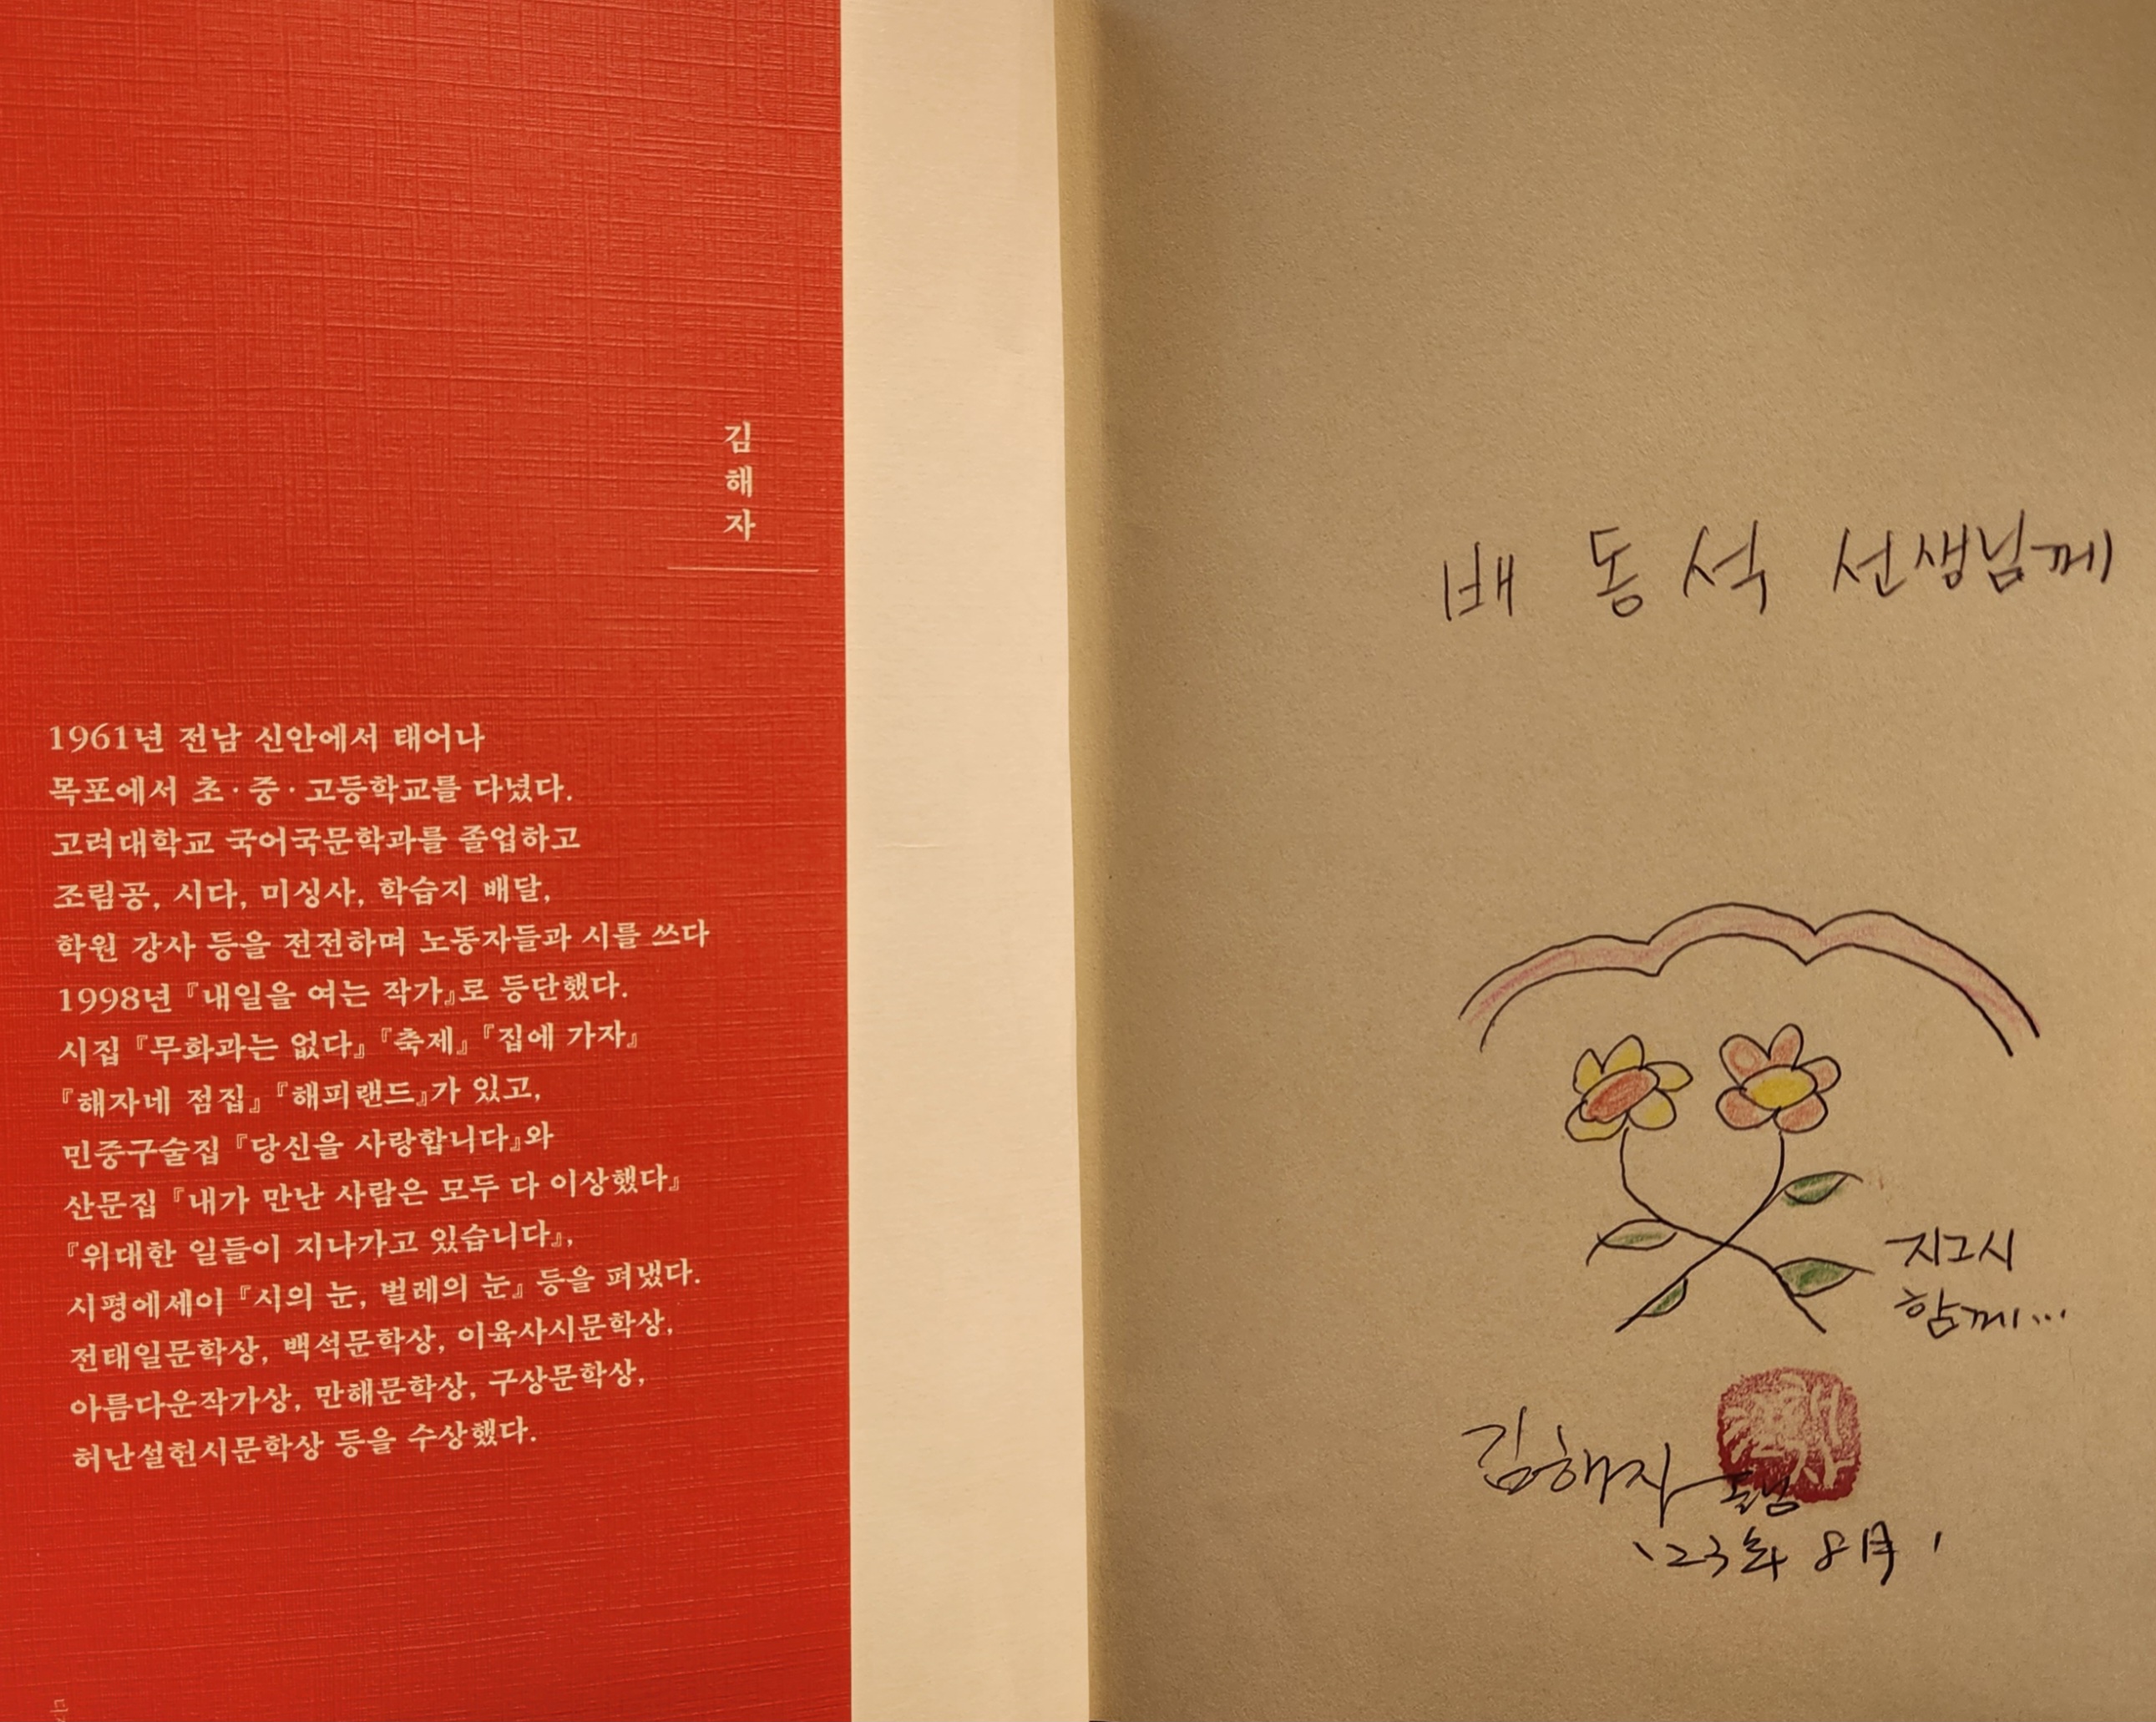 김해자
1961년 전남 신안에서 태어나
목포에서 초·중·고등학교를 다녔다.
고려대학교 국어국문학과를 졸업하고
조림공, 시다, 미싱사, 학습지 배달,
학원 강사 등을 전전하며 노동자들과 시를 쓰다
1998년 『내일을 여는 작가』로 등단했다.
시집 『무화과는 없다』 『축제』 『집에 가자』
『해자네 점집』 『해피랜드』가 있고,
민중구술집 『당신을 사랑합니다』와
산문집 『내가 만난 사람은 모두 다 이상했다』
『위대한 일들이 지나가고 있습니다』,
시평에세이 『시의 눈, 벌레의 눈』 등을 펴냈다.
전태일문학상, 백석문학상, 이육사시문학상,
아름다운작가상, 만해문학상, 구상문학상,
허난설헌시문학상 등을 수상했다.
배동석 선생님께
함께...
김해자 드림
'23年 8月